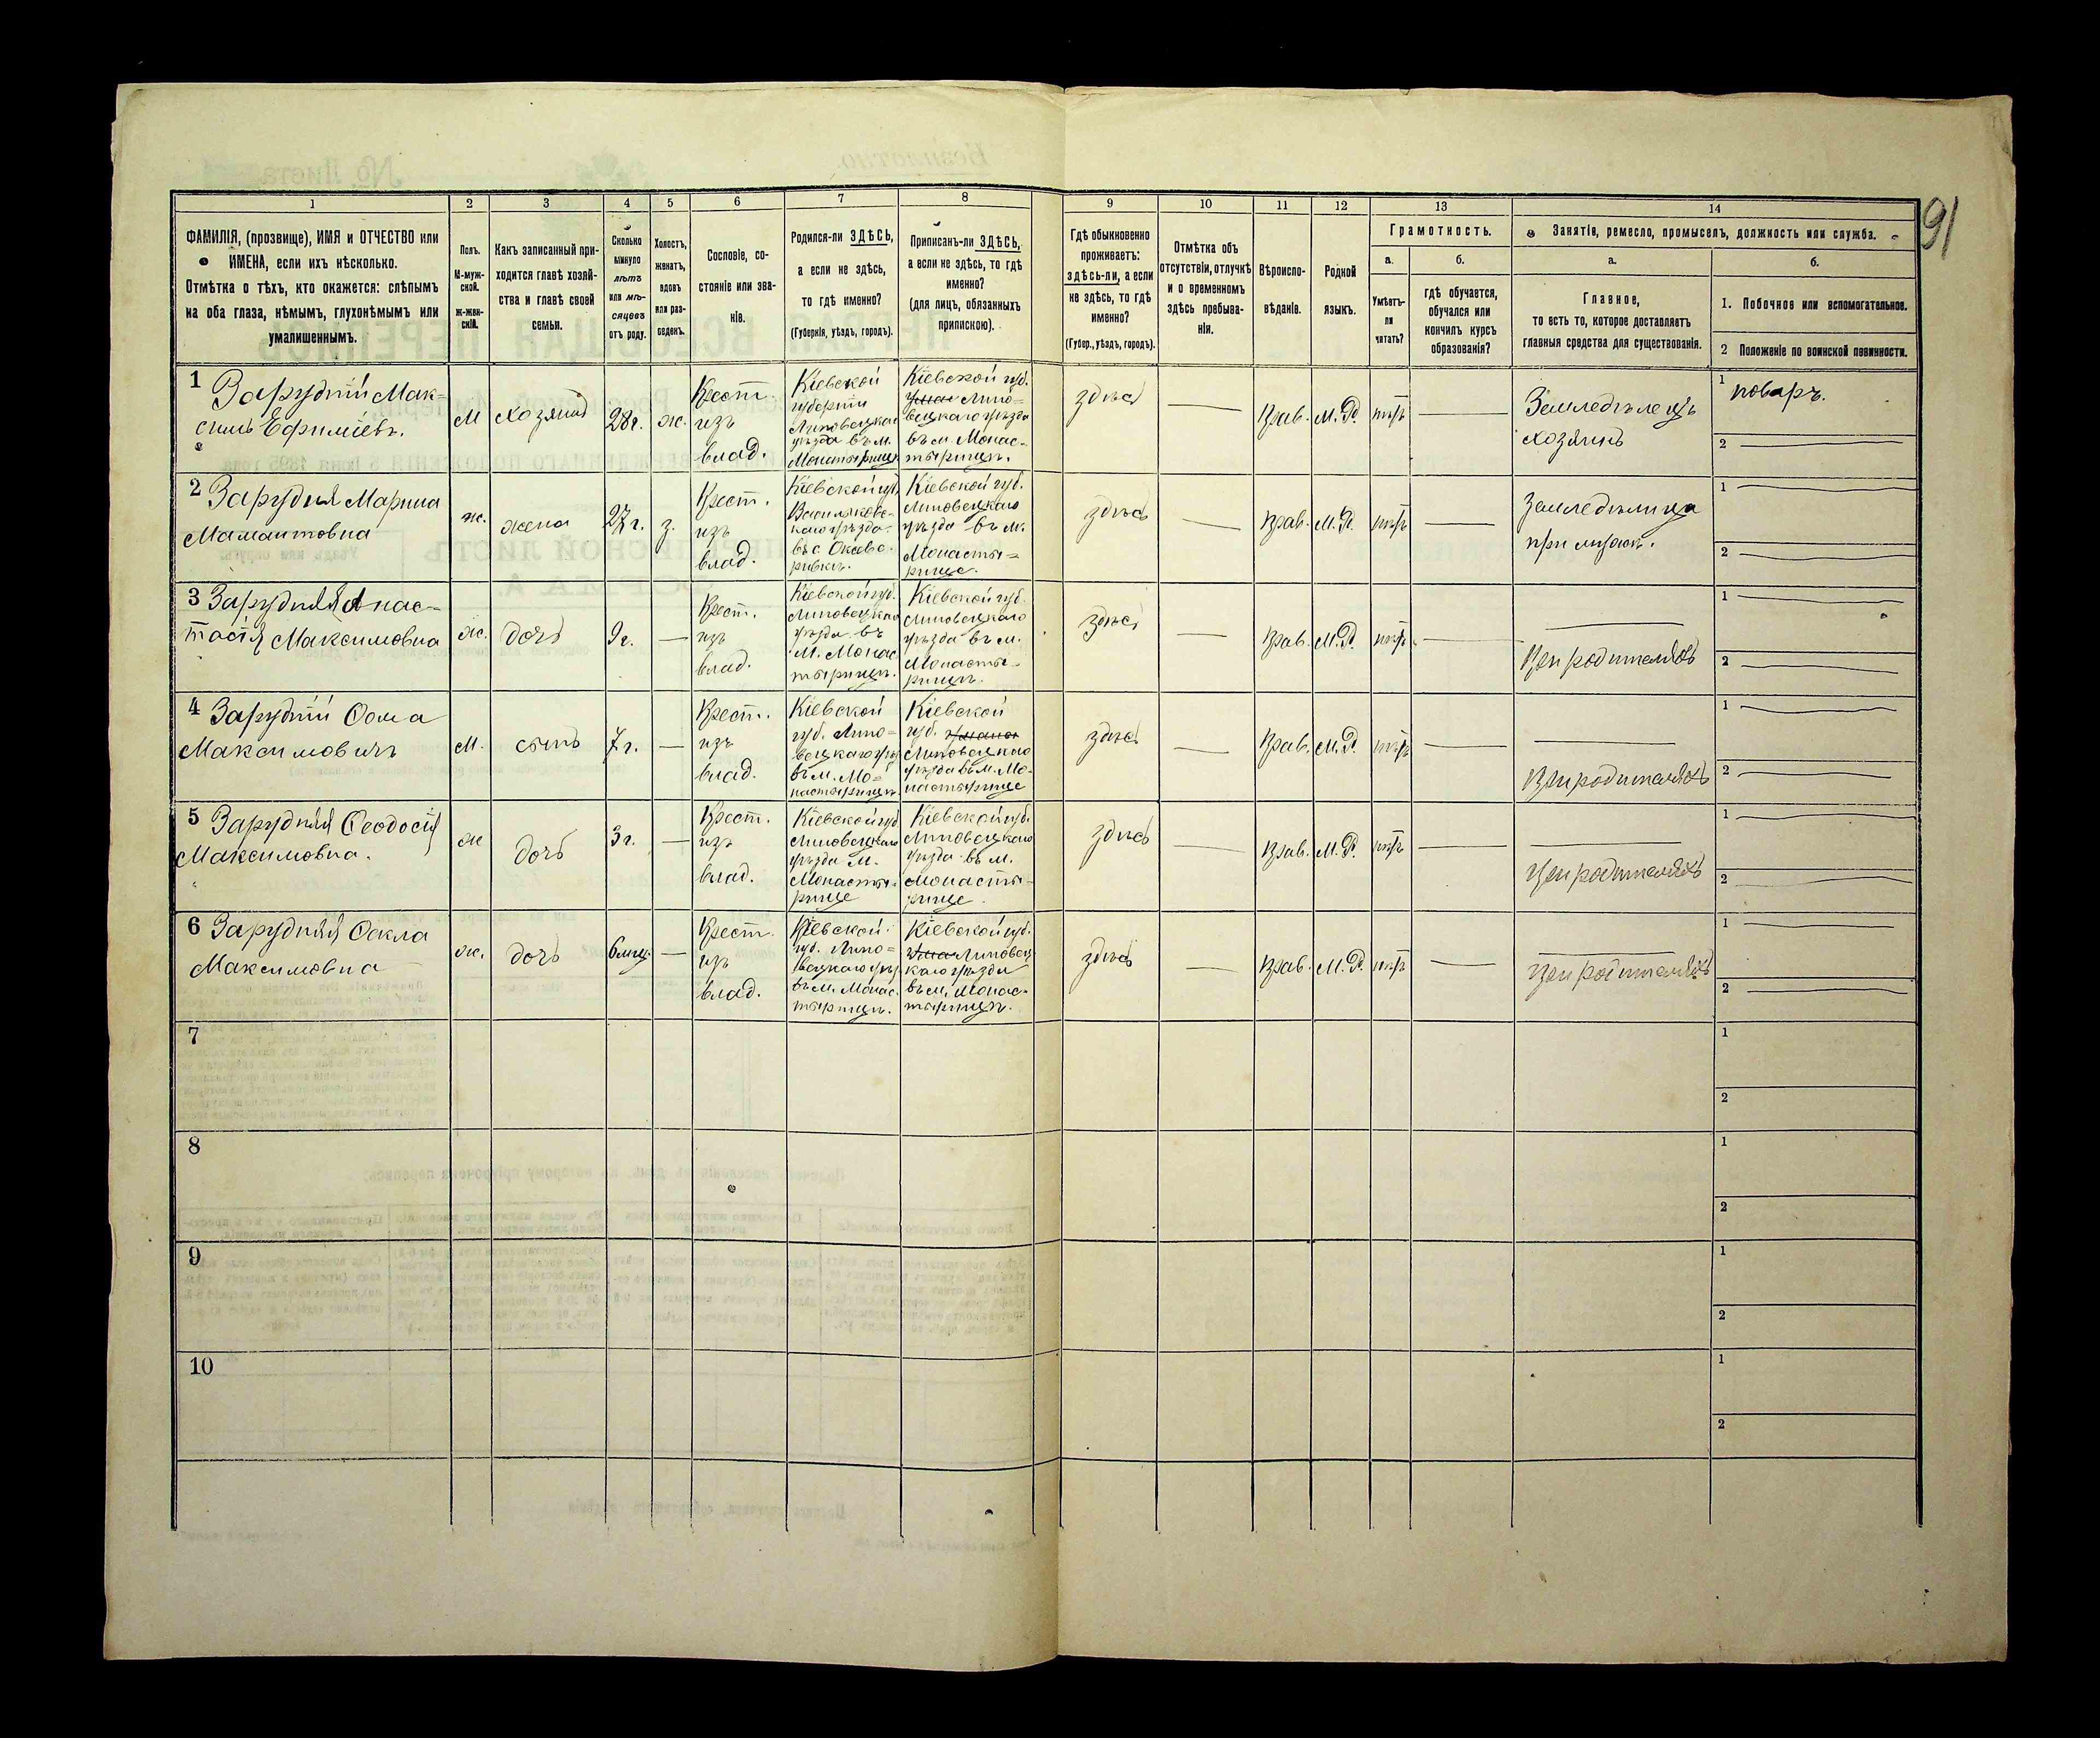 91
1
2
3
4
5
6
7
8
9
10
11
12
13
14
ФАМИЛІЯ, (прозвище), ИМЯ и ОТЧЕСТВО или
ИМЕНА, если ихъ нѣсколько.
Отмѣтка о тѣхъ, кто окажется: слѣпымъ
на оба глаза, нѣмымъ, глухонѣмымъ или
умалишеннымъ.
Полъ.
М-муж-
ской.
ж-жен-
скій.
Какъ записанный при-
ходится главѣ хозяй-
ства и главѣ своей
семьи.
Сколько
минуло
лѣтъ
или мѣ-
сяцевъ
отъ роду.
Холостъ,
женатъ,
вдовъ
или раз-
веденъ.
Сословіе, со-
стояніе или зва-
ніе.
Родился-ли ЗДѢСЬ,
а если не здѣсь,
то гдѣ именно?
(Губернія, уѣздъ, городъ).
Приписанъ-ли ЗДѢСЬ,
а если не здѣсь, то гдѣ
именно?
(для лицъ, обязанныхъ
припискою).
Гдѣ обыкновенно
проживаетъ:
здѣсь-ли, а если
не здѣсь, то гдѣ
именно?
(Губер., уѣздъ, городъ).
Отмѣтка объ
отсутствіи, отлучкѣ
и о временномъ
здѣсь пребыва-
ніи.
Вѣроиспо-
вѣданіе.
Родной
языкъ.
Грамотность.
а.
Умѣетъ-
ли
читать?
б.
гдѣ обучается,
обучался или
кончилъ курсъ
образованія?
Занятіе, ремесло, промыселъ, должность или служба.
а.
Главное,
то есть то, которое доставляетъ
главныя средства для существованія.
б.
1. Побочное или вспомогательное.
2 Положеніе по воинской повинности.
1
Зарудній Мак-
симъ Ефиміевъ.
М
хозяинъ
28 г.
ж.
Крест.
изъ
влад.
Кіевской
губерніи
Липовецкаго
уѣзда въ м.
Монастырищѣ
Кіевской губ.
Липо-
вецкаго уѣзда
въ м. Монас-
тырищѣ.
здѣсь
Прав.
М. Р.
нѣтъ
Земледѣлецъ
хозяинъ
1 поваръ.
2
2
Зарудняя Марина
Мамантовна
ж.
жена
27 г.
з.
Крест.
изъ
влад.
Кіевской губ.
Васильковс-
каго уѣзда
въ с.
Кіевской губ.
Липовецкаго
уѣзда въ м.
Монасты-
рище.
здѣсь
Прав.
М. Р.
нѣтъ
Земледѣлица
при мужѣ.
1
2
3
Зарудняя Анас-
тасія Максимовна
ж.
дочь
9 г.
Крест.
изъ
влад.
Кіевской губ.
Липовецкаго
уѣзда въ
м. Монас
тырищѣ.
Кіевской губ.
Липовецкаго
уѣзда въ м.
Монасты-
рищѣ.
здѣсь
Прав.
М. Р.
нѣтъ
При родителяхъ
1
2
4
Зарудній Ѳома
Максимовичъ
М.
сынъ
7 г.
Крест.
изъ
влад.
Кіевской
губ. Липо-
вецкаго уѣз
въ м. Мо-
настырищѣ.
Кіевской
губ.
Липовецкаго
уѣзда въ м. Мо-
настырище
здѣсь
Прав.
М. Р.
нѣтъ
При родителяхъ
1
2
5
Зарудняя Ѳеодосія
Максимовна.
ж
дочь
3 г.
Крест.
изъ
влад.
Кіевской губ
Липовецкаго
уѣзда м.
Монасты-
рище
Кіевской губ.
Липовецкаго
уѣзда въ м.
Монасты-
рище.
здѣсь
Прав.
М. Р.
нѣтъ
При родителяхъ
1
2
6
Зарудняя Ѳекла
Максимовна
ж.
дочь
6 мѣц.
Крест.
изъ
влад.
Кіевской
губ. Липо-
вецкаго уѣз
въ м. Монас.
тырищѣ.
Кіевской губ.
Липовец
каго уѣзда
въ м. Монас-
тырищѣ.
здѣсь
Прав.
М. Р.
нѣтъ
При родителяхъ
1
2
7
1
2
8
1
2
9
1
2
10
1
2